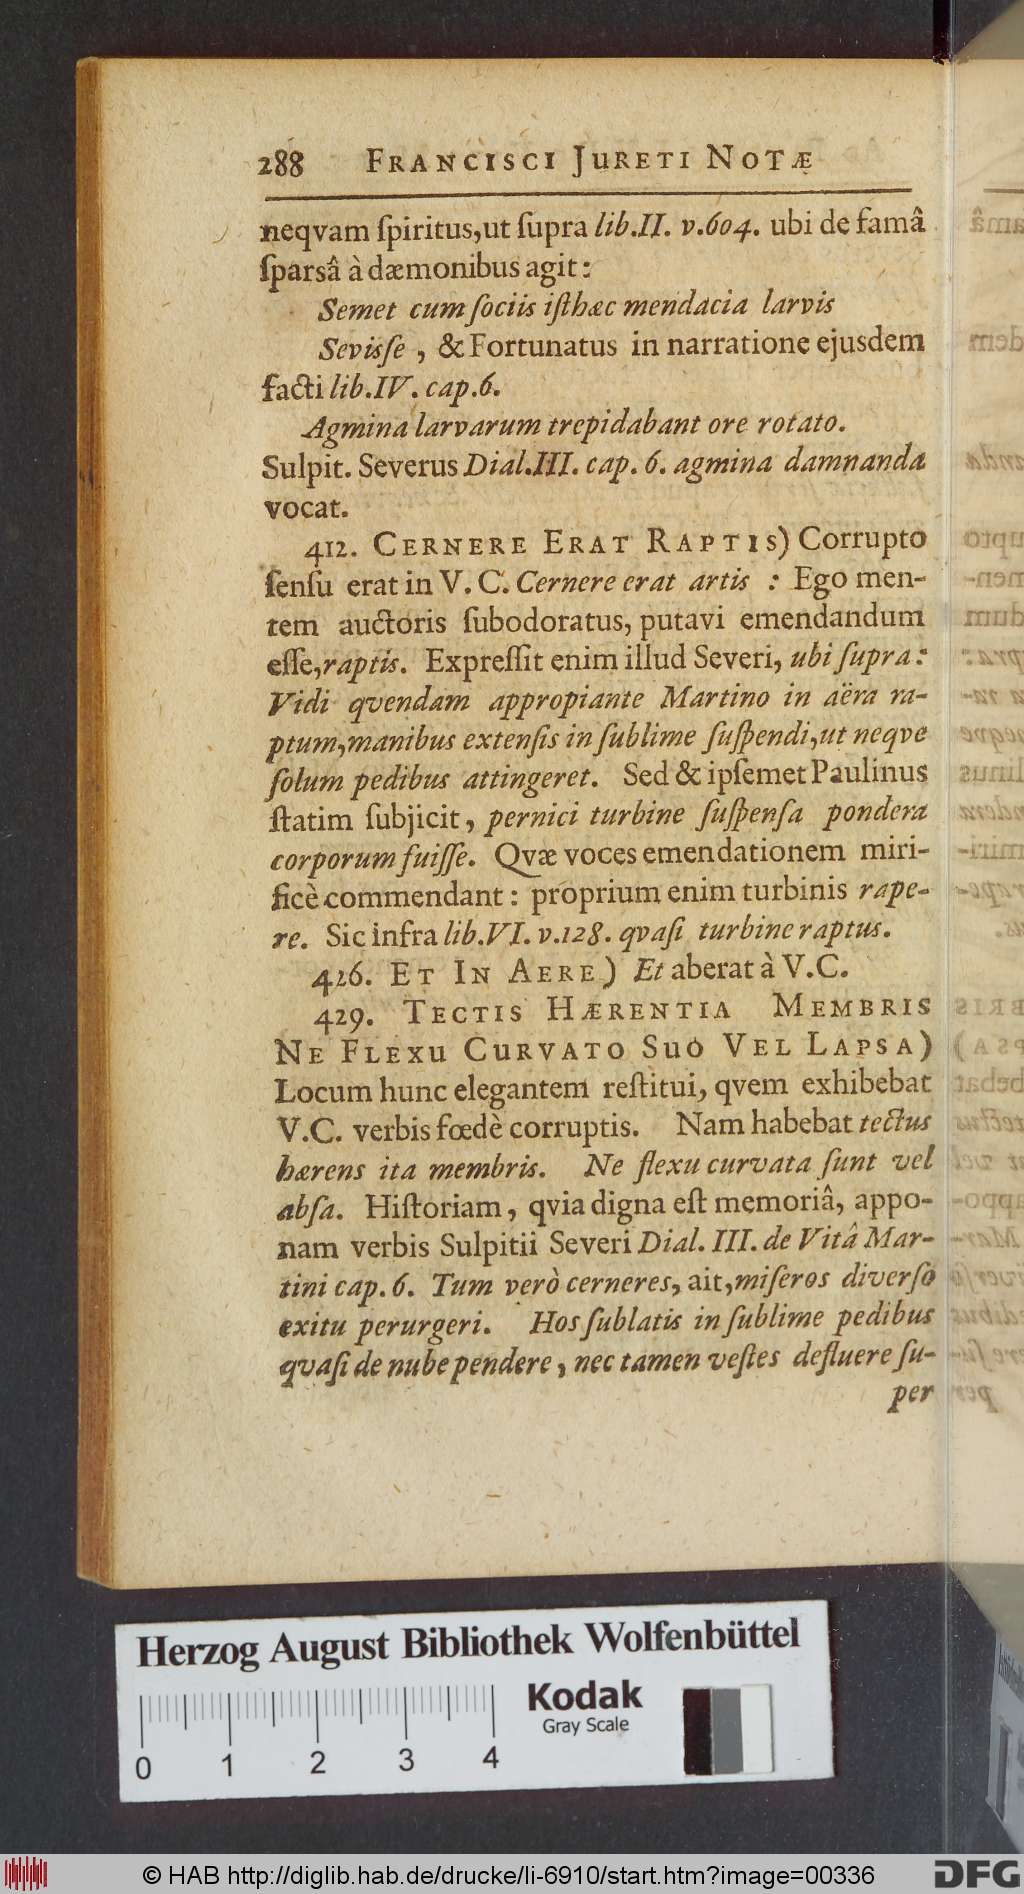 288 FRANCISCI JURETI NOTÆ
neqvam ſpiritus,ut ſupra lib.II. v.604. ubi de famâ
ſparsâ à dæmonibus agit:
Semet cum ſociis iſthæc mendacia larvis
Sevisſe , & Fortunatus in narratione ejusdem
facti lib.IV. cap.6.
Agmina larvarum trepidabant ore rotato.
Sulpit. Severus Dial.III. cap. 6. agmina damnanda
vocat.
412. CERNERE ERAT RAPTIS) Corrupto
ſenſu erat in V. C. Cernere erat artis : Ego men-
tem auctoris ſubodoratus, putavi emendandum
eſſe,raptis. Expreſſit enim illud Severi, ubi ſupra:
Vidi qvendam appropiante Martino in aëra ra-
ptum,manibus extenſis in ſublime ſuſpendi,ut neqve
ſolum pedibus attingeret. Sed & ipſemet Paulinus
ſtatim ſubjicit, pernici turbine ſuſpenſa pondera
corporum fuiſſe. Qvæ voces emendationem miri-
ficè commendant: proprium enim turbinis rape-
re. Sic infra lib.VI. v.128. qvaſi turbine raptus.
426. ET IN AERE) Et aberat à V.C.
429. TECTIS HÆRENTIA MEMBRIS
NE FLEXU CURVATO SUO VEL LAPSA)
Locum hunc elegantem reſtitui, qvem exhibebat
V.C. verbis fœdè corruptis. Nam habebat tectus
hærens ita membris. Ne flexu curvata ſunt vel
abſa. Hiſtoriam, qvia digna eſt memoriâ, appo-
nam verbis Sulpitii Severi Dial. III. de Vitâ Mar-
tini cap. 6. Tum verò cerneres, ait,miſeros diverſo
exitu perurgeri. Hos ſublatis in ſublime pedibus
qvaſi de nube pendere, nec tamen veſtes defluere ſu-
per
Herzog August Bibliothek Wolfenbüttel
Kodak
Gray Scale
0 1 2 3 4
© HAB http://diglib.hab.de/drucke/li-6910/start.htm?image=00336
DFG